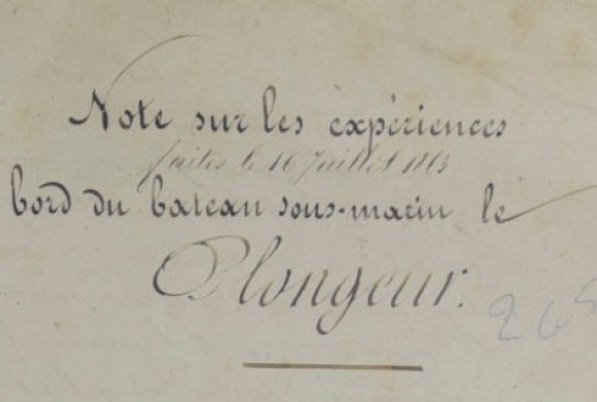 Note sur les expériences
faites le 16 Juillet 1863
bord du bateau sous-marin le
Plongeur.
265